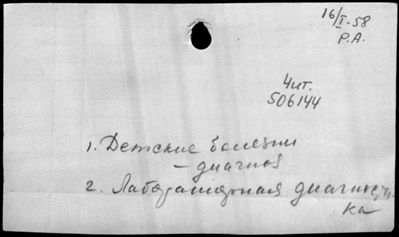 16/I-58
Р.А.
Чит.
506144
1. Детские болезни
- диагноз
2. Лабораторная диагности-
ка